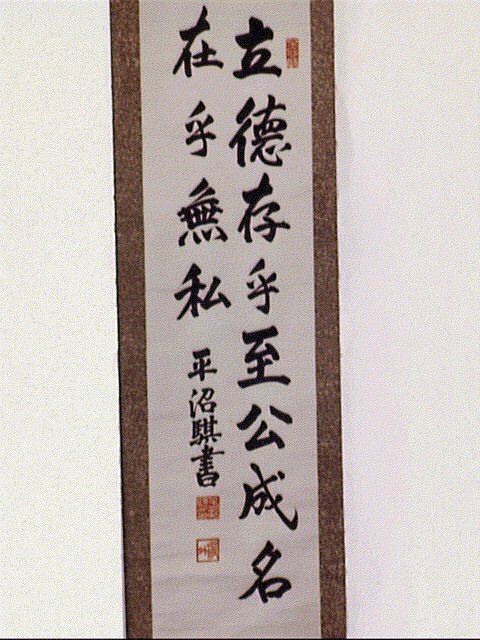 立德存乎至公成名
在乎無私
平沼騏書